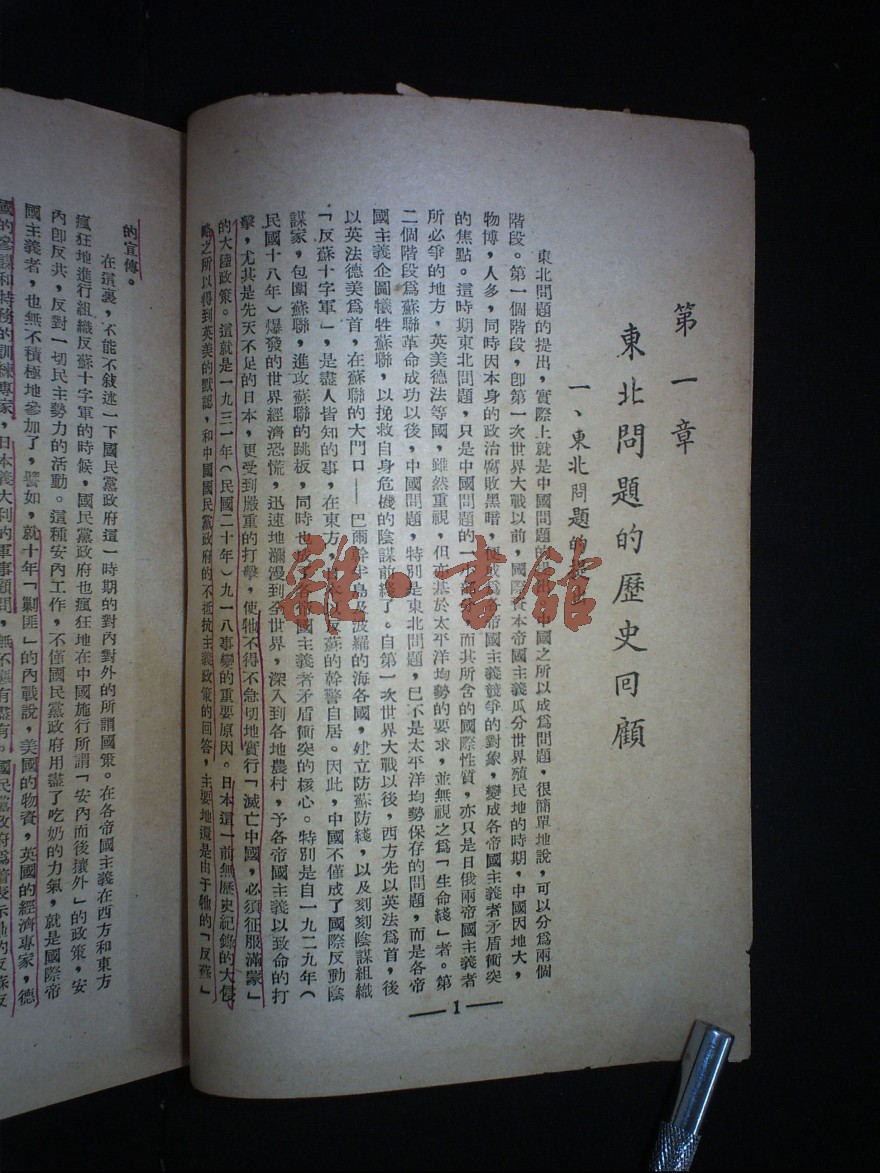 第一章
東北問題的歷史回顧
一、東北問題的提出
東北問題的提出，實際上就是中國問題的提出，中國之所以成爲問題，很簡單地說，可以分爲兩個
階段。第一個階段，卽第一次世界大戰以前，國際資本帝國主義瓜分世界殖民地的時期，中國因地大，
物博，人多，同時因本身的政治腐敗黑暗，便成爲各帝國主義競爭的對象，變成各帝國主義者矛盾衝突
的焦點。這時期東北問題，只是中國問題的一部分，而其所含的國際性質，亦只是日俄兩帝國主義者
所必爭的地方，英美德法等國，雖然重視，但亦基於太平洋均勢的要求，並無視之爲「生命綫」者。第
二個階段爲蘇聯革命成功以後，中國問題，特別是東北問題，已不是太平洋均勢保存的問題，而是各帝
國主義企圖犧牲蘇聯，以挽救自身危機的陰謀前綫了。自第一次世界大戰以後，西方先以英法爲首，後
以英法德美爲首，在蘇聯的大門口——巴爾幹半島及波羅的海各國，建立防蘇防綫，以及刻刻陰謀組織
「反蘇十字軍」，是盡人皆知的事，在東方，日本以反蘇的幹警自居。因此，中國不僅成了國際反動陰
謀家，包圍蘇聯，進攻蘇聯的跳板，同時也成了各帝國主義者矛盾衝突的核心。特別是自一九二九年（
民國十八年）爆發的世界經濟恐慌，迅速地瀰漫到全世界，深入到各地農村，予各帝國主義以致命的打
擊，尤其是先天不足的日本，更受到嚴重的打擊，使牠不得不急切地實行「滅亡中國，必須征服滿蒙」
的大陸政策。這就是一九三一年（民國二十年）九一八事變的重要原因。日本這一前無歷史紀錄的大侵
略之所以得到英美的默認，和中國國民黨政府的不抵抗主義政策的回答，主要地還是由于牠的「反蘇」
1
的宣傳。
在這裏，不能不敘述一下國民黨政府這一時期的對內對外的所謂國策。在各帝國主義在西方和東方
瘋狂地進行組織反蘇十字軍的時候，國民黨政府也瘋狂地在中國施行所謂「安內而後攘外」的政策，安
內卽反共，反對一切民主勢力的活動。這種安內工作，不僅國民黨政府用盡了吃奶的力氣，就是國際帝
國主義者，也無不積極地參加了，譬如，就十年「剿匪」的內戰說，美國的物資，英國的經濟專家，德
國的參謀和特務的訓練專家，日本義大利的軍事顧問，無不應有盡有。國民黨政府爲着表示牠的反蘇反
雜·書館